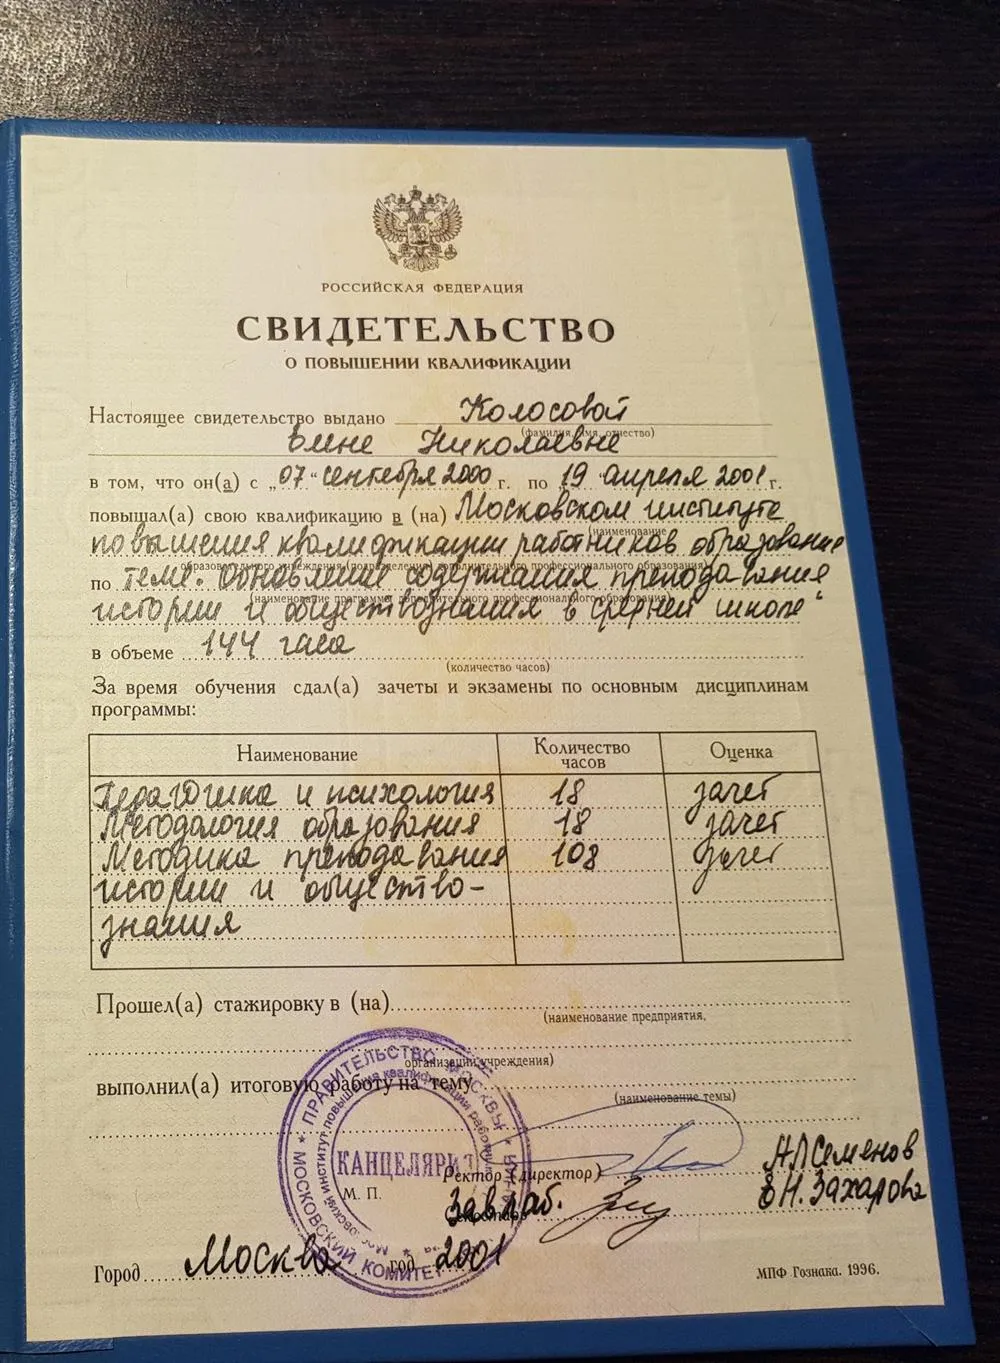 РОССИЙСКАЯ ФЕДЕРАЦИЯ
СВИДЕТЕЛЬСТВО
О ПОВЫШЕНИИ КВАЛИФИКАЦИИ
Настоящее свидетельство выдано Колосовой
(фамилия, имя, отчество)
Елене Николаевне
в том, что он(а) с „07“ сентября 2000 г. по „19“ апреля 2001 г.
повышал(а) свою квалификацию в (на) Московском институте
(наименование
повышения квалификации работников образования
образовательного учреждения (подразделения) дополнительного профессионального образования)
по теме: „Обновление содержания преподавания
(наименование программы дополнительного профессионального образования)
истории и обществознания в средней школе“
в объеме 144 часа
(количество часов)
За время обучения сдал(а) зачеты и экзамены по основным дисциплинам
программы:
Наименование Количество часов Оценка
Педагогика и психология 18 зачет
Методология образования 18 зачет
Методика преподавания 108 зачет
истории и общество-
знания
Прошел(а) стажировку в (на)
(наименование предприятия,
организации, учреждения)
выполнил(а) итоговую работу на тему
(наименование темы)
ПРАВИТЕЛЬСТВО МОСКВЫ
МОСКОВСКИЙ КОМИТЕТ
институт повышения квалификации работников
КАНЦЕЛЯРИЯ
М. П.
Ректор (директор) А.Л. Семенов
Зав лаб. Е.Н. Захарова
Секретарь
Город Москва год 2001
МПФ Гознака. 1996.